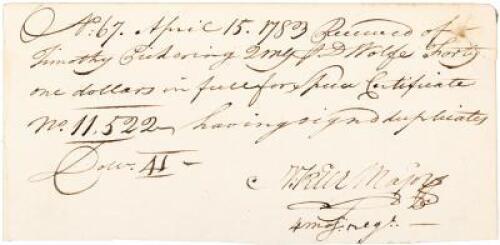 No. 67. April 15. 1783 Received of
Timothy Pickering QMG D Wolfe Forty
one dollars in full for Certificate
No. 11.522 having signd duplicates
Dolrs. 41 –
Major
4